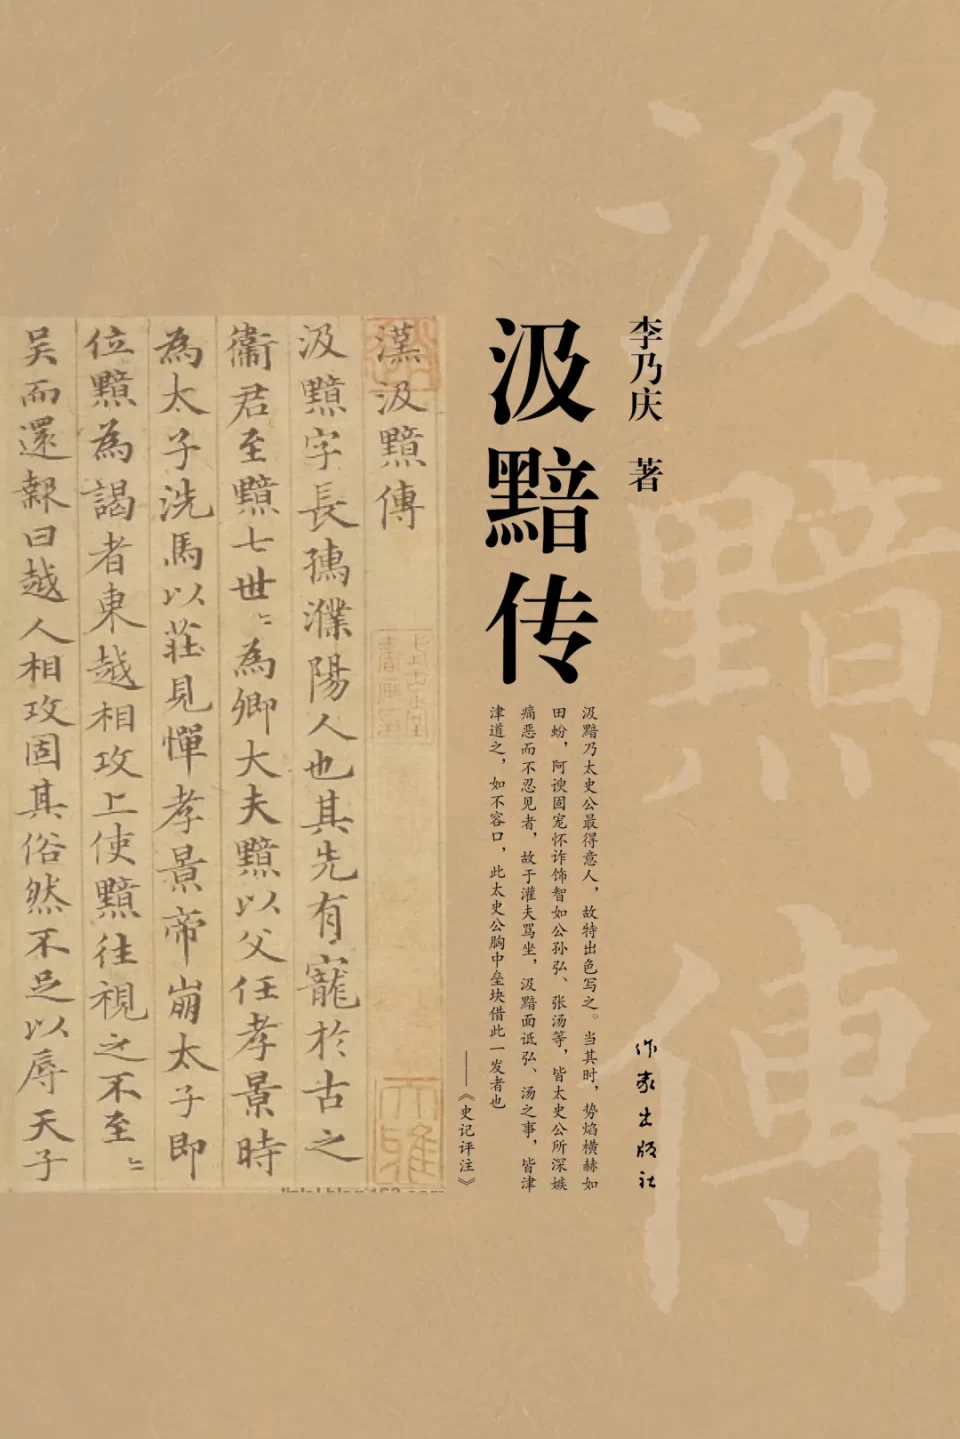 汲黯傳
李乃庆 著
作家出版社
汲黯传
汲黯乃太史公最得意人，故特出色写之。当其时，势焰横赫如
田蚡，阿谀固宠怀诈饰智如公孙弘、张汤等，皆太史公所深嫉
痛恶而不忍见者，故于灌夫骂坐，汲黯面诋弘、汤之事，皆津
津道之，如不容口，此太史公胸中垒块借此一发者也
——《史记评注》
漢汲黯傳
汲黯字長孺濮陽人也其先有寵於古之
衞君至黯七世〻為卿大夫黯以父任孝景時
為太子洗馬以莊見憚孝景帝崩太子即
位黯為謁者東越相攻上使黯往視之不至〻
吴而還報曰越人相攻固其俗然不足以辱天子